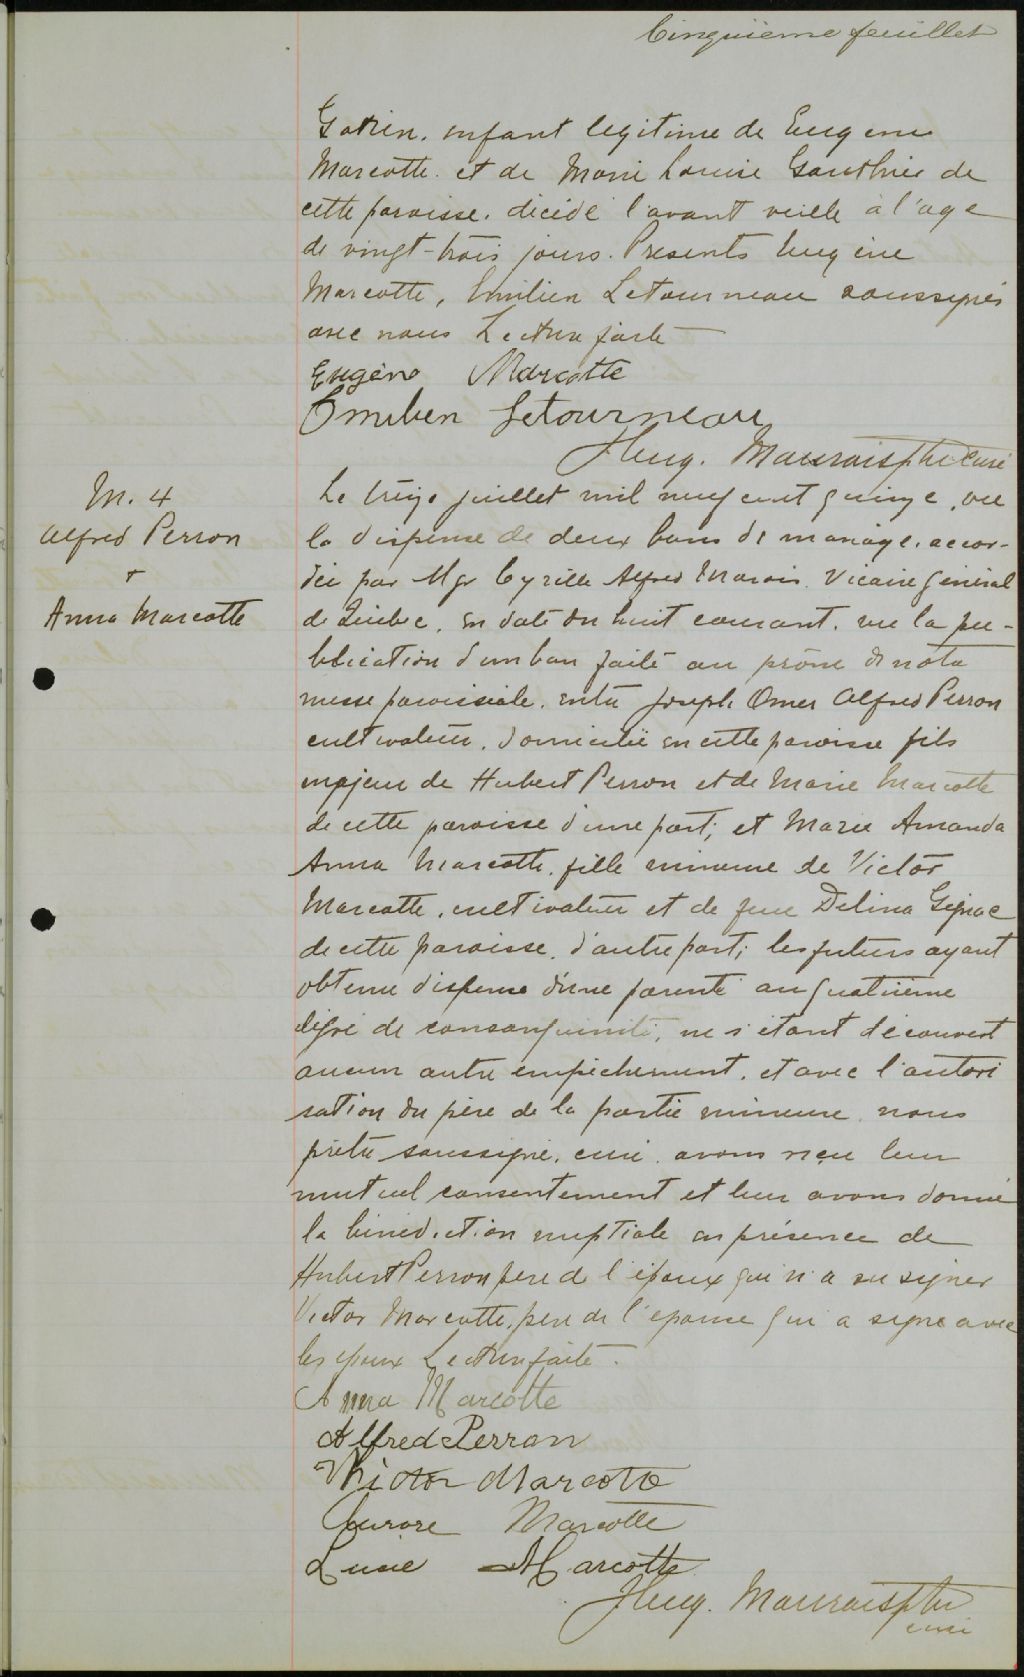 Cinquième feuillet
enfant legitime de Eugene
Marcotte. et de Marie Louise Gauthier de
cette paroisse. décédé l'avant veille à l'age
de vingt-trois jours. Presents Eugène
Marcotte, Emilien Letourneau soussignés
avec nous Lecture faite
Eugène Marcotte
Emilien Letourneau
Maurais ptre curé
M. 4
Alfred Perron
+
Anna Marcotte
Le treize juillet mil neuf cent quinze, vu
la dispense de deux bans de mariage. accor-
dée par Mgr Cyrille Alfred Marois. Vicaire général
de Québec, en date du huit courant. vu la pu-
blication d'un ban faite au prône de notre
messe paroissiale. entre Joseph Omer Alfred Perron
cultivateur, domicilié en cette paroisse fils
majeur de Hubert Perron et de Marie Marcotte
de cette paroisse d'une part; et Marie Amanda
Anna Marcotte. fille mineure de Victor
Marcotte, cultivateur et de feue Delina Gignac
de cette paroisse. d'autre part; les futurs ayant
obtenu dispense d'une parenté au quatrième
degré de consanguinité, ne s'étant découvert
aucun autre empêchement. et avec l'autori
sation du père de la partie mineure. nous
prêtre soussigné, curé. avons reçu leur
mutuel consentement et leur avons donné
la bénédiction nuptiale en présence de
Hubert Perron père de l'époux qui n'a su signer
Victor Marcotte, père de l'épouse qui a signé avec
les époux Lecture faite.
Anna Marcotte
Alfred Perron
Victor Marcotte
Aurore Marcotte
Lucie Marcotte
Maurais ptre
curé